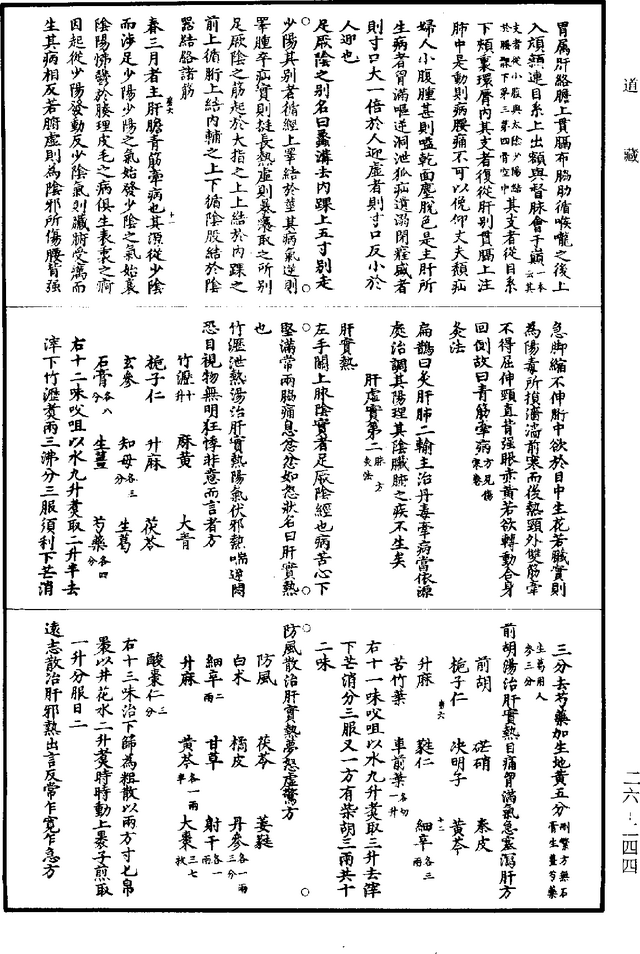 道藏
胃属肝絡膽上貫膈布脇肋循喉嚨之後上
入頏顙連目系上出額與督脉會于巔一本云其
支者從小腹與太陰少陽結於腰髁下第三第四骨空中其支者從目系
下頰裏環脣内其支者復從肝别貫膈上注
肺中是動則病腰痛不可以俛仰丈夫㿗疝
婦人小腹腫甚則嗌乾面塵脫色是主肝所
生病者胷滿嘔逆洞泄狐疝遺溺閉癃盛者
則寸口大一倍於人迎虚者則寸口反小於
人迎也
足厥陰之别名曰蠡溝去内踝上五寸别走
少陽其别者循經上睪結於莖其病氣逆則
睪腫卒疝實則挺長熱虚則暴癢取之所别
足厥陰之筋起於大指之上上結於内踝之
前上循胻上結内輔之上下循陰股結於陰
器結絡諸筋
春三月者主肝膽青筋牽病也其源從少陰
而涉足少陽少陽之氣始發少陰之氣始衰
陰陽怫鬱於腠理皮毛之病俱生表裏之疴
因起從少陽發動反少陰氣則臟腑受癘而
生其病相反若腑虚則為陰邪所傷腰背强
急脚縮不伸胻中欲折目中生花若臟實則
為陽毒所損濇濇前寒而後熱頸外雙筋牽
不得屈伸頸直背强眼赤黄若欲轉動合身
回側故曰青筋牽病方見傷寒卷
灸法
扁鵲曰灸肝肺二輸主治丹毒牽病當依源
處治調其陽理其陰臟腑之疾不生矣
肝虚實第二脉方灸法
肝實熱
左手關上脉陰實者足厥陰經也病苦心下
堅滿常兩脇痛息忿忿如怒狀名曰肝實熱
也
竹瀝泄熱湯治肝實熱陽氣伏邪熱喘逆悶
恐目視物無明狂悸非意而言者方
竹瀝一升 麻黄 大青
梔子仁 升麻 茯苓
玄參 知母各三分 生葛
石膏各八分 生薑 芍藥各四分
右十二味㕮咀以水九升煑取二升半去
滓下竹瀝煑兩三沸分三服須利下芒消
三分去芍藥加生地黄五分刪繁方無石膏生薑芍藥
生葛用人參三分
前胡湯治肝實熱目痛胷滿氣急塞瀉肝方
前胡 硭硝 秦皮
梔子仁 決明子 黄芩
升麻 蕤仁 細辛各三兩
苦竹葉 車前葉各切一升
右十一味㕮咀以水九升煑取三升去滓
下芒消分三服又一方有柴胡三兩共十
二味
防風散治肝實熱夢怒虚驚方
防風 茯苓 葳蕤
白朮 橘皮 丹參各一兩三分
細辛二兩 甘草 射干各一兩
升麻 黄芩各一兩半 大棗三七枚
酸棗仁三分
右十三味治下篩為粗散以兩方寸匕帛
裹以井花水二升煑時時動上裹子煎取
一升分服日二
遠志散治肝邪熱出言反常乍寛乍急方
二六-一四四